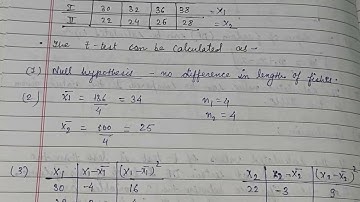 I 30 32 36 38 - x1
II 22 24 26 28 = x2
• The t-test can be calculated as -
(1) Null hypothesis - no difference in length of fishes.
(2) x̄1 = 136/4 = 34 n1 = 4
x̄2 = 100/4 = 25 n2 = 4
(3) x1 x1-x̄1 (x1-x̄1)² x2 x2-x̄2 (x2-x̄2)²
30 -4 16 22 -3 9